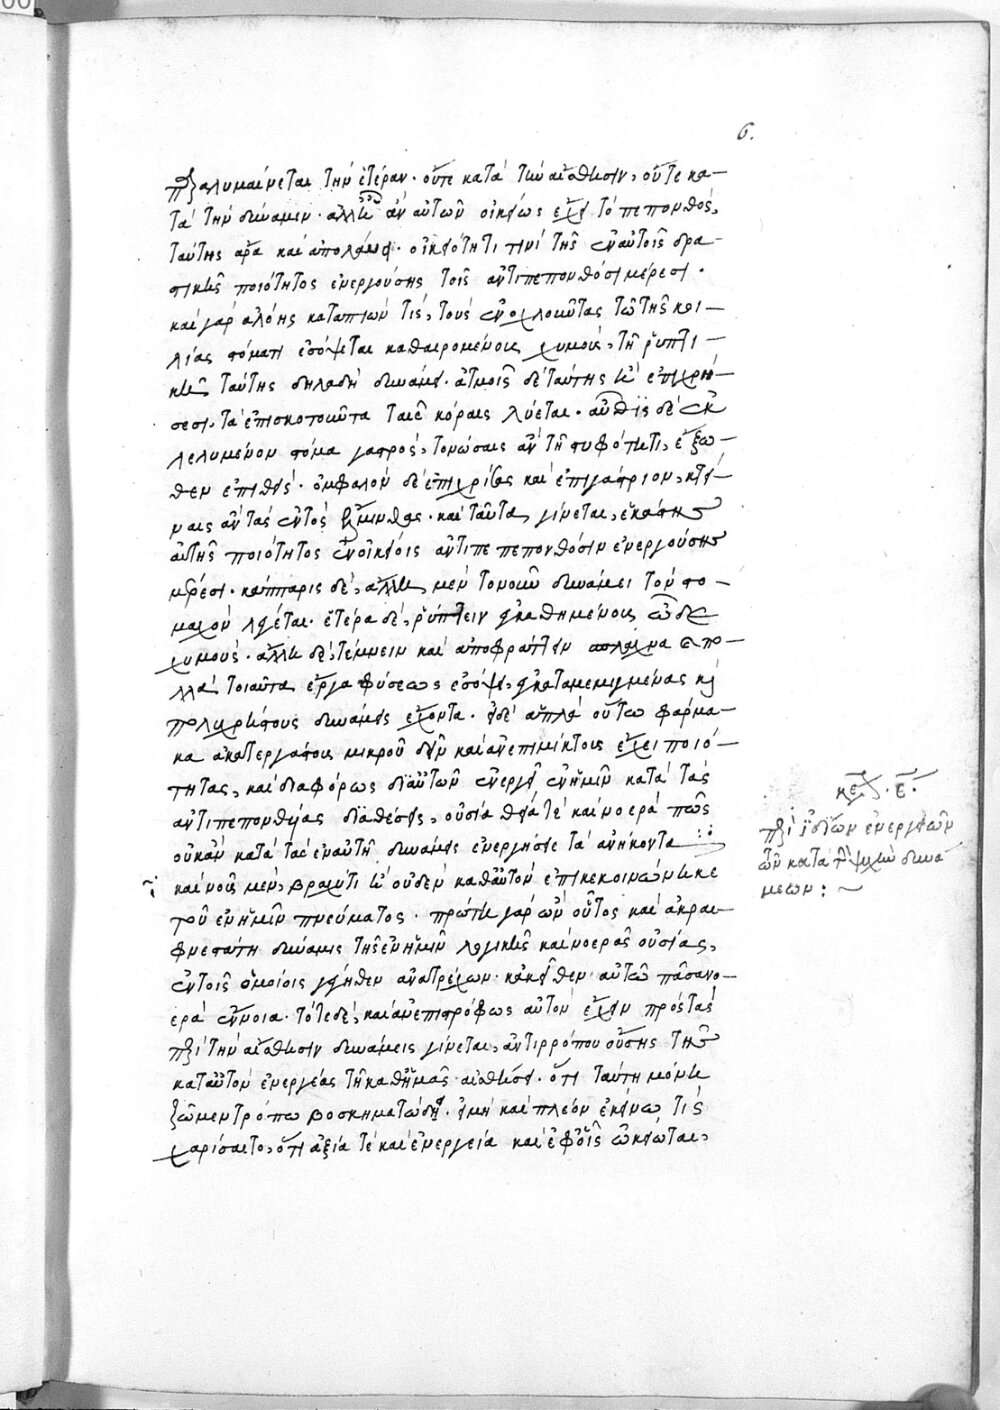 6.
παραλυμαίνεται τὴν ἑτέραν· οὔτε κατὰ τὴν αἴσθησιν, οὔτε κα-
τὰ τὴν δύναμιν· ἀλλ' ἂν αὐτῶν οἰκείως ἔχει τὸ πεπονθὸς,
ταύτης ἄρα καὶ ἀπολαύει· οἰκειότητι τινὶ τῆς ἐν αὐτοῖς δρα-
στικῆς ποιότητος ἐνεργούσης τοῖς ἀντιπεπονθόσι μέρεσι·
καὶ γὰρ ἀλόης καταπιών τίς, τοὺς ἐνοχλοῦντας τῶ τῆς κοι-
λίας στόματι ἐσόψεται καθαιρομένους χυμοὺς, τῇ ῥυπτι-
κῇ ταύτης δηλαδὴ δυνάμει· ἀτμοῖς δὲ ταύτης ἢ ἐπιχρί-
σεσι, τὰ ἐπισκοτοῦντα ταῖς κόραις λύεται· αὖθις δὲ ἐκ
λελυμένον στόμα γαστρὸς, τονώσαις ἂν τῇ στυφότητι, ἔξω-
θεν ἐπιθείς· ὀμφαλὸν δὲ ἐπιχρίσας καὶ ἐπιγάστριον, κτεί-
ναις ἂν τὰς ἐντὸς ἕλμινθας· καὶ ταῦτα γίνεται, ἑκάστης
αὐτῆς ποιότητος ἐν οἰκείοις ἀντιπεπονθόσιν ἐνεργούσης
μέρεσι· κάππαρις δὲ, ἄλλῃ μὲν τονοῦν δυνάμει τὸν στό-
μαχον λέγεται· ἑτέρα δὲ, ῥύπτειν ἐγκαθημένους ὧδε
χυμούς· ἄλλῃ δὲ, τέμνειν καὶ ἀποφράττειν σπλάχνα
πολλὰ τοιαῦτα ἔργα φύσεως ἐσόψει, ἐγκαταμεμιγμένας καὶ
πολυχρήστους δυνάμεις ἔχοντα· εἰ δὲ ἁπλᾶ οὕτω φάρμα-
κα ἀκατεργάστους μικροῦ δεῖν καὶ ἀνεπιμίκτους ἔχει ποιό-
τητας, καὶ διαφόρως δι' αὐτῶν ἐνεργεῖ ἐν ἡμῖν κατὰ τὰς
ἀντιπεπονθυίας διαθέσεις, οὐσία θεία τὲ καὶ νοερὰ πῶς
οὐκ ἂν κατὰ τὰς ἐν αὐτῇ δυνάμεις ἐνεργήσειε τὰ ἀνήκοντα
καὶ νοῦς μὲν, βραχύ τι ἢ οὐδὲν καθ' αὑτὸν ἐπικεκοινώνηκε
τοῦ ἐν ἡμῖν πνεύματος· πρώτη γὰρ ὢν οὗτος καὶ ἀκραι-
φνεστάτη δύναμις τῆς ἐν ἡμῖν λογικῆς καὶ νοερᾶς οὐσίας,
ἐν τοῖς ὁμοίοις γῆθεν ἀνατρέχων· κἀκεῖθεν αὐτῶ πᾶσα νο-
ερὰ ἔννοια· τότε δὲ, καὶ ἀνεπιστρόφως αὐτὸν ἔχειν πρὸς τὰς
περὶ τὴν αἴσθησιν δυνάμεις γίνεται, ἀντιρρόπου οὔσης τῆς
κατ' αὐτὸν ἐνεργείας τῇ καθ' ἡμᾶς αἰσθήσει· ὅτι ταύτῃ μόνῃ
ζῶμεν τρόπω βοσκηματώδει· εἰ μὴ καὶ πλέον ἐκείνω τίς
χαρίσαιτο, ὅτι ἀξία τὲ καὶ ἐνεργεία καὶ ἐφ' οἷς ὠκείωται,
κεφ. ε.
περὶ ἰδίων ἐνεργειῶν
τῶν κατὰ τὴν ψυχὴν δυνά
μεων: ~